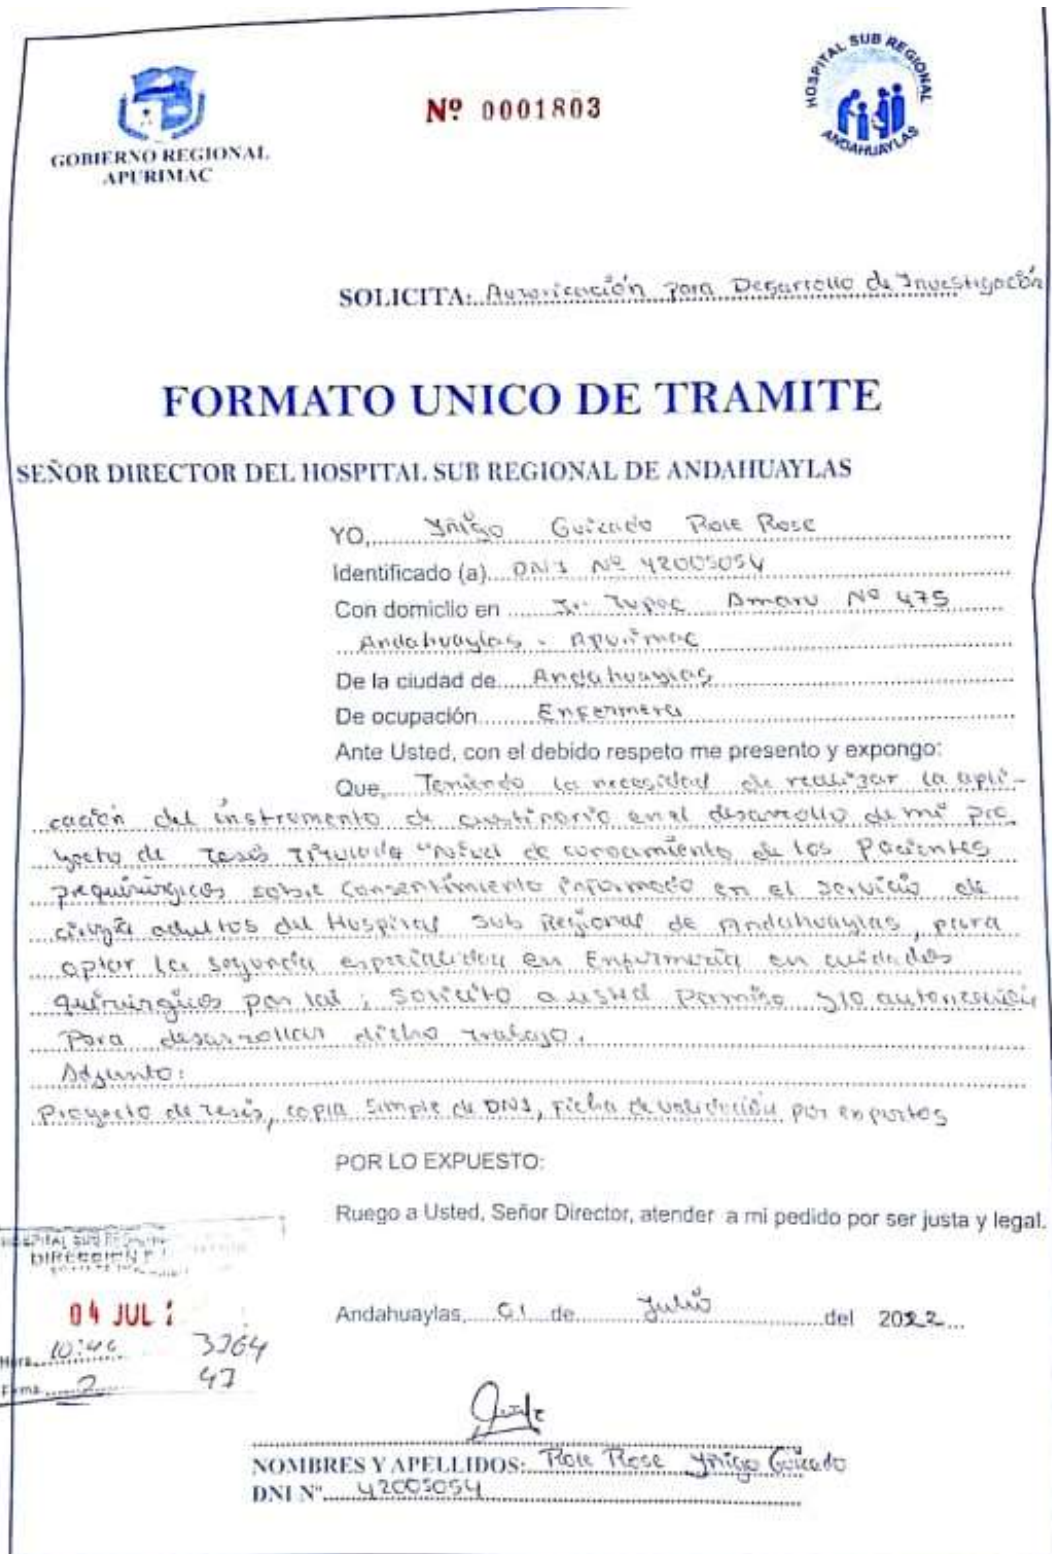 GOBIERNO REGIONAL
APURIMAC
Nº 0001803
HOSPITAL SUB REGIONAL
ANDAHUAYLAS
SOLICITA: Autorización para Desarrollo de Investigación
FORMATO UNICO DE TRAMITE
SEÑOR DIRECTOR DEL HOSPITAL SUB REGIONAL DE ANDAHUAYLAS
YO, Yñigo Guizado Rose
Identificado (a) DNI Nº 42005054
Con domiclio en Jr. Tupac Amaru Nº 475
Andahuaylas - Apurímac
De la ciudad de Andahuaylas
De ocupación Enfermera
Ante Usted, con el debido respeto me presento y expongo:
Que, Teniendo la necesidad de realizar la apli-
cación del instrumento de en el desarrollo de mi pro
yecto de Tesis Titulada "Nivel de conocimiento de los Pacientes
prequirúrgicos sobre Consentimiento informado en el servicio de
cirugía adultos del Hospital Sub Regional de Andahuaylas, para
optar la segunda especialidad en Enfermería en cuidados
quirúrgicos por tal ; solicito a usted Permiso y/o autorización
Para desarrollar dicho trabajo.
Adjunto:
Proyecto de Tesis, copia simple de DNI, Ficha de validación por expertos
POR LO EXPUESTO:
Ruego a Usted, Señor Director, atender a mi pedido por ser justa y legal.
HOSPITAL SUB
04 JUL
Andahuaylas, 01 de Julio del 2022
Hora 10:46 3364
Firma 47
NOMBRES Y APELLIDOS: Rose Yñigo Guizado
DNI Nº 42005054